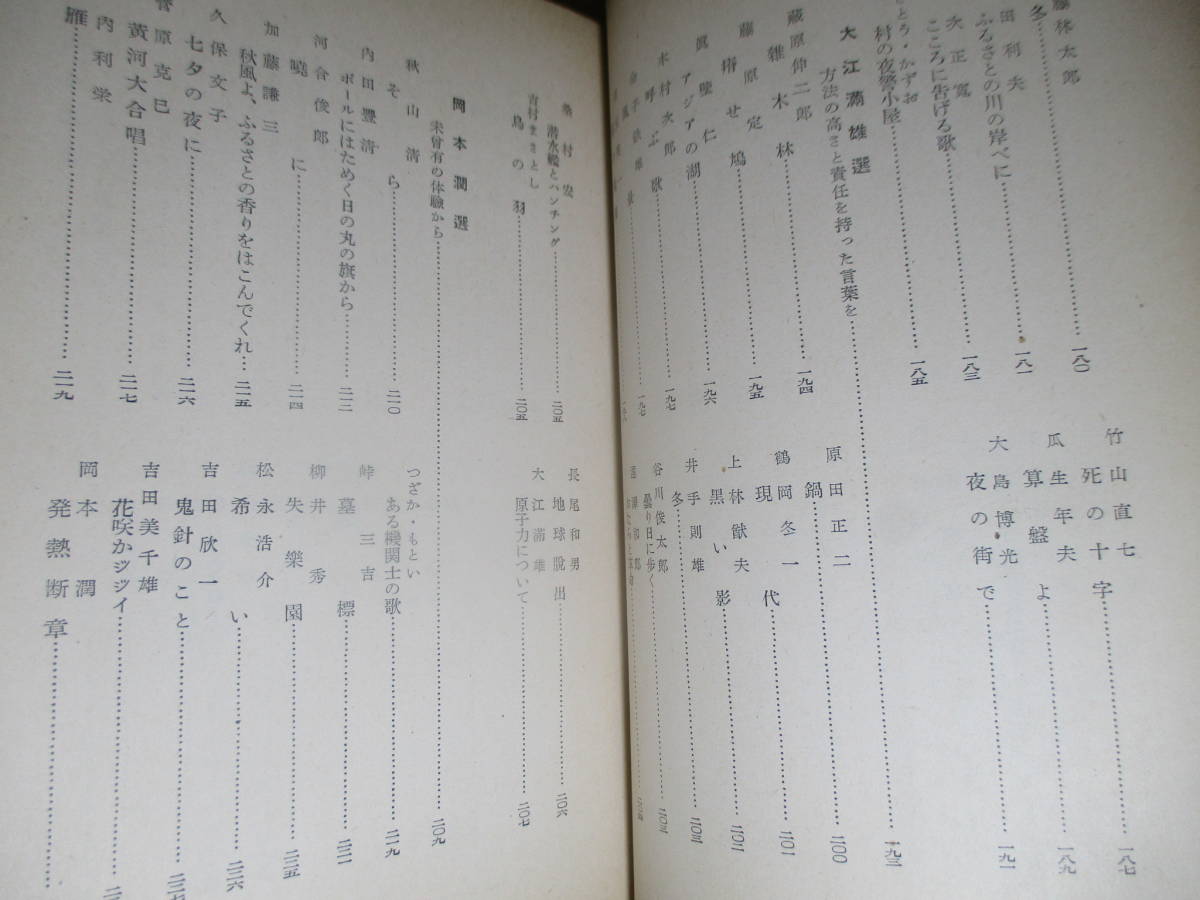 藤林太郎
冬…………一八〇
田利夫
ふるさとの川の岸べに…………一八一
次正寛
こころに告げる歌…………一八三
さとう・かずお
村の夜警小屋…………一八五
竹山直七
死の十字…………一八七
瓜生年夫
算盤よ…………一八九
大島博光
夜の街で…………一九一
大江満雄選
方法の高さと責任を持った言葉を…………一九三
蔵原伸二郎
雑木林…………一九四
藤原定
樹せ鳩…………一九五
眞壁仁
アジアの湖…………一九六
木村次郎
呼ぶ歌…………一九七
金子鉄雄
一九七
原田正二
鍋…………二〇〇
鶴岡冬一
現代…………二〇一
上林猷夫
黒い影…………二〇二
井手則雄
冬…………二〇三
谷川俊太郎
曇り日に歩く…………二〇三
桑村宏
潜水艦とパンチング…………二〇五
吉村まさとし
鳥の羽…………二〇五
長尾和男
地球脱出…………二〇六
大江満雄
原子力について…………二〇七
岡本潤選
未曾有の体験から…………二〇九
秋山清
そら…………二一〇
内田豊清
ポールにはためく日の丸の旗から…………二一二
河合俊郎
曉に…………二一四
加藤謙三
秋風よ、ふるさとの香りをはこんでくれ…二一五
久保文子
七夕の夜に…………二一六
菅原克巳
黄河大合唱…………二一七
内利栄
雁…………二一九
つざか・もとい
ある機関士の歌…………二一九
峠三吉
墓標…………二二一
柳井秀
失樂園…………二二五
松永浩介
希い…………二二六
吉田欣一
鬼針のこと…………二二七
吉田美千雄
花咲かジジイ…………二
岡本潤
発熱断章…………